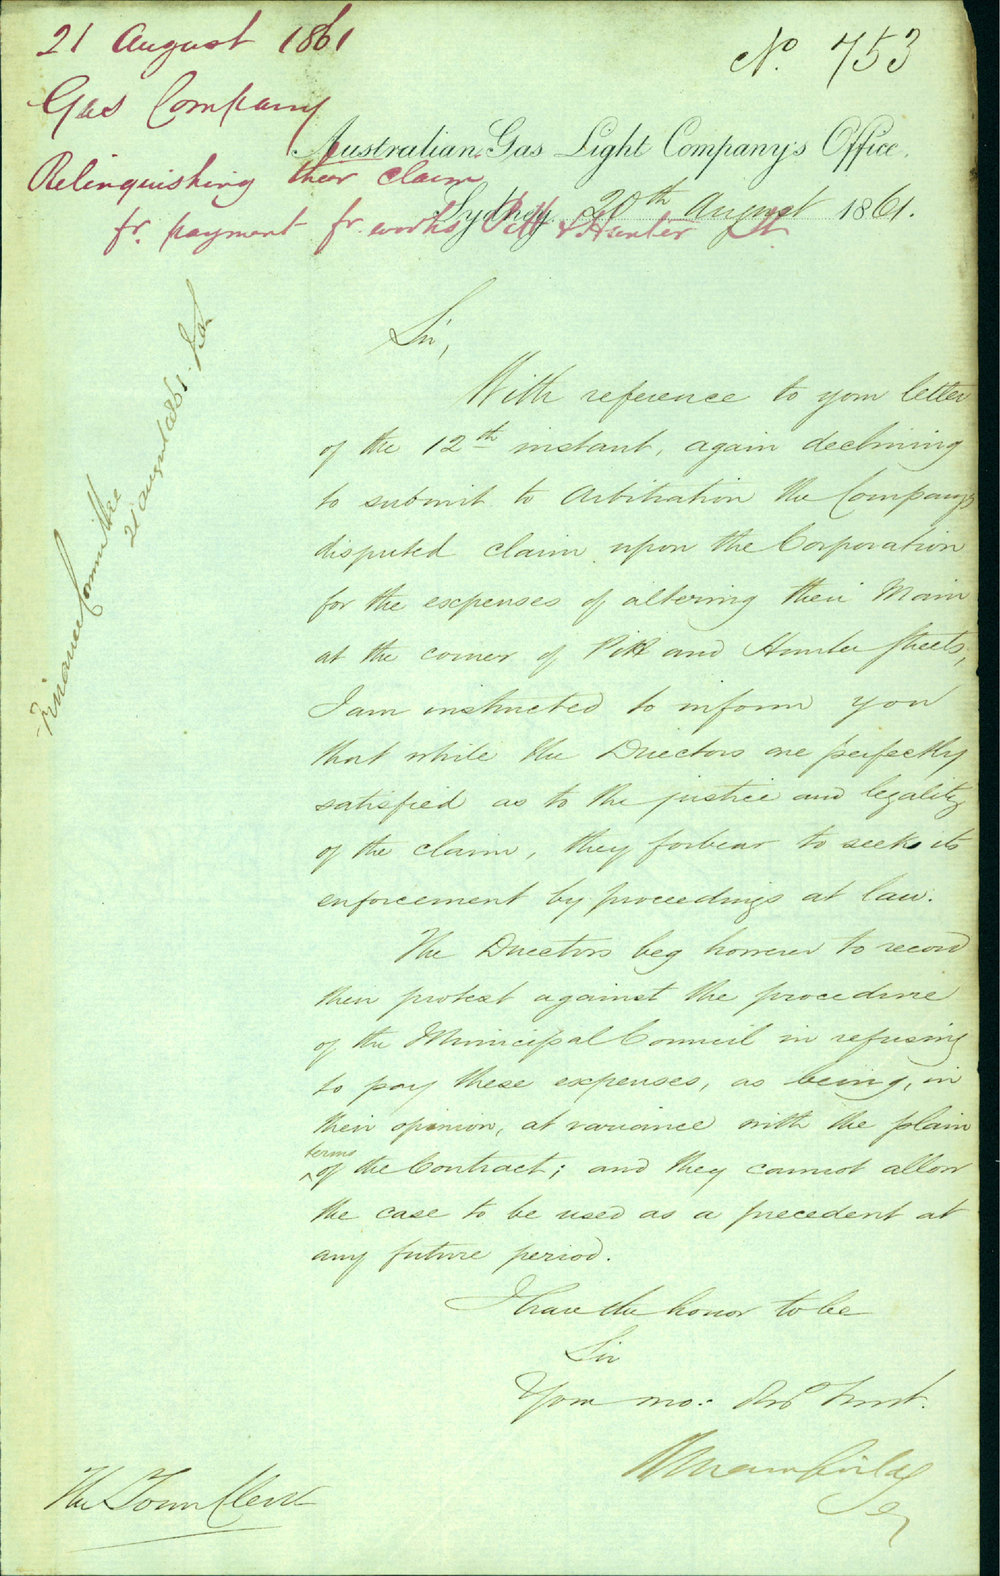 21 August 1861
No. 753
Gas Company
Australian Gas Light Company's Office.
Relinquishing their claim
Sydney 20th August 1861.
fr. payment fr. works Pitt & Hunter St
Finance Committee
21 August 1861.
Sir,
With reference to your letter
of the 12th instant, again declining
to submit to Arbitration the Company's
disputed claim upon the Corporation
for the expenses of altering their Main
at the corner of Pitt and Hunter Streets,
I am instructed to inform you
that while the Directors are perfectly
satisfied as to the justice and legality
of the claim, they forbear to seek its
enforcement by proceedings at law.
The Directors beg however to record
their protest against the procedure
of the Municipal Council in refusing
to pay these expenses, as being, in
their opinion, at variance with the plain
terms
of the Contract; and they cannot allow
the case to be used as a precedent at
any future period.
I have the honor to be
Sir
Your mo: Obt Servt.
The Town Clerk